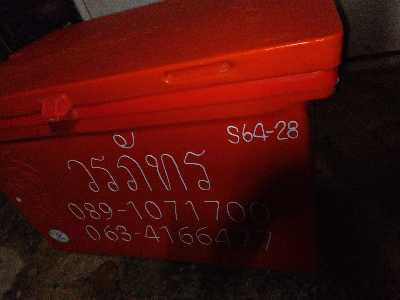 S64-28
วรภัทร
089-1071700
063-4166477